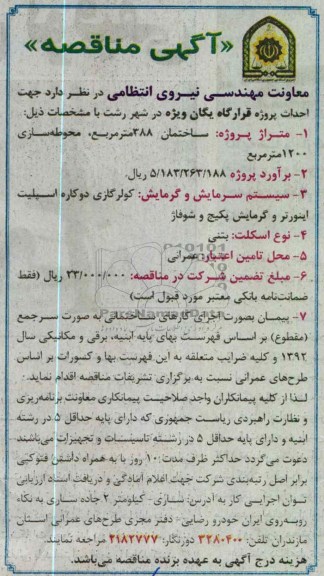 «آگهی مناقصه»
معاونت مهندسی نیروی انتظامی در نظر دارد جهت
احداث پروژه قرارگاه یگان ویژه در شهر رشت با مشخصات ذیل:
۱- متراژ پروژه: ساختمان ۳۸۸مترمربع، محوطه‌سازی
۱۲۰۰مترمربع
۲- برآورد پروژه ۵/۱۸۳/۲۶۳/۱۸۸ ریال.
۳- سیستم سرمایش و گرمایش: کولرگازی دوکاره اسپلیت
اینورتر و گرمایش پکیج و شوفاژ
۴- نوع اسکلت: بتنی
۵- محل تامین اعتبار: عمرانی
۶- مبلغ تضمین شرکت در مناقصه: ۲۳/۰۰۰/۰۰۰ ریال (فقط
ضمانت‌نامه بانکی معتبر مورد قبول است)
۷- پیمان بصورت اجرای کارهای ساختمانی به صورت سرجمع
(مقطوع) بر اساس فهرست بهای پایه ابنیه، برقی و مکانیکی سال
۱۳۹۲ و کلیه ضرایب متعلقه به این فهرست بها و کسورات بر اساس
طرح‌های عمرانی نسبت به برگزاری تشریفات مناقصه اقدام نماید.
لذا از کلیه پیمانکاران واجد صلاحیت پیمانکاری معاونت برنامه‌ریزی
و نظارت راهبردی ریاست جمهوری که دارای پایه حداقل ۵ در رشته
ابنیه و دارای پایه حداقل ۵ در رشته تاسیسات و تجهیزات می‌باشند
دعوت می‌گردد حداکثر ظرف مدت ۱۰ روز با به همراه داشتن فتوکپی
برابر اصل رتبه‌بندی شرکت جهت اعلام آمادگی و دریافت اسناد ارزیابی
توان اجرایی کار به آدرس: ساری- کیلومتر ۲ جاده ساری به نکاء
روبه‌روی ایران خودرو رضایی- دفتر مجری طرح‌های عمرانی استان
مازندران تلفن: ۳۲۸۰۴۰۰ دورنگار: ۲۱۸۲۷۷۷ مراجعه نمایند.
هزینه درج آگهی به عهده برنده مناقصه می‌باشد.